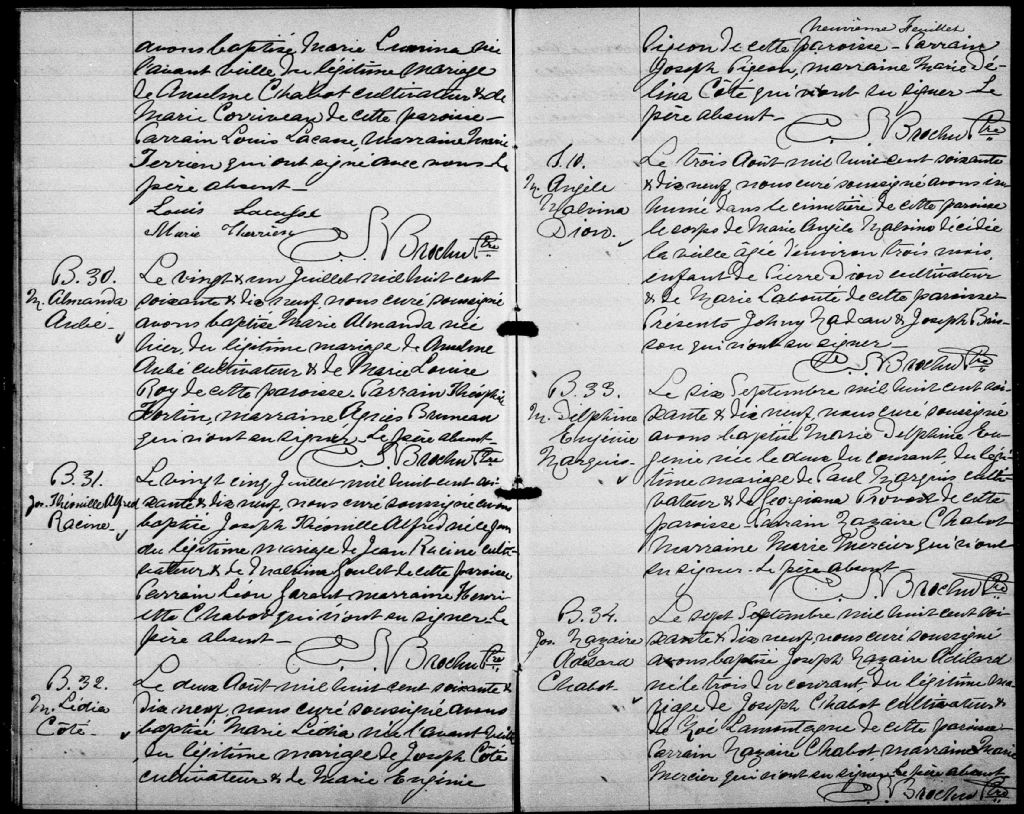 avons baptisé Marie Lumina née
l'avant veille du légitime mariage
de Anselme Chabot cultivateur & de
Marie Corriveau de cette paroisse -
Parrain Louis Lacasse marraine Marie
Terrien qui ont signé avec nous. Le
père absent -
Louis Lacasse
Marie Therrien
Brochu Ptre
B. 30.
M. Almanda
Aubé -
Le vingt & un Juillet mil huit cent
soixante & dix neuf, nous curé soussigné
avons baptisé Marie Almanda née
hier, du légitime mariage de Anselme
Aubé cultivateur & de Marie Louise
Roy de cette paroisse. Parrain Théophile
Fortin, marraine Agnès Bruneau
qui n'ont su signer. Le père absent -
Brochu Ptre
B. 31.
Jos. Théomille Alfred
Racine -
Le vingt cinq Juillet mil huit cent soi-
xante & dix neuf, nous curé soussigné avons
baptisé Joseph Théomille Alfred né ce jour
du légitime mariage de Jean Racine culti-
vateur & de Malvina Goulet de cette paroisse
Parrain Léon Garant marraine Henri-
ette Chabot qui n'ont su signer. Le
père absent -
Brochu Ptre
B. 32.
M. Lédia
Côté -
Le deux Août mil huit cent soixante &
dix neuf, nous curé soussigné avons
baptisé Marie Lédia née l'avant veille
du légitime mariage de Joseph Côté
cultivateur & de Marie Eugénie
Neuvième Feuillet
Pigeon de cette paroisse - Parrain
Joseph Pigeon, marraine Marie Dé-
lina Côté qui n'ont su signer - Le
père absent -
Brochu Ptre
S. 10.
M. Angèle
Malvina
Dion.
Le trois Août mil huit cent soixante
& dix neuf, nous curé soussigné avons in-
humé dans le cimetière de cette paroisse
le corps de Marie Angèle Malvina décédée
la veille âgée d'environ trois mois,
enfant de Pierre Dion cultivateur
& de Marie Labonté de cette paroisse
Présents Johny Nadeau & Joseph Bris-
son qui n'ont su signer -
Brochu Ptre
B. 33.
M. Delphine
Eugénie
Marquis -
Le six Septembre mil huit cent soi-
xante & dix neuf, nous curé soussigné
avons baptisé Marie Delphine Eu-
génie née le deux du courant du légi-
time mariage de Paul Marquis culti-
vateur & de Georgiana Provost de cette
paroisse Parrain Nazaire Chabot
Marraine Marie Mercier qui n'ont
su signer - Le père absent
Brochu Ptre
B. 34.
Jos. Nazaire
Adélard
Chabot
Le sept Septembre mil huit cent soi-
xante & dix neuf, nous curé soussigné
avons baptisé Joseph Nazaire Adélard
né le trois du courant, du légitime ma-
riage de Joseph Chabot cultivateur &
de Zoé Lamontagne de cette paroisse
Parrain Nazaire Chabot, marraine Marie
Mercier qui n'ont su signer. Le père absent
Brochu Ptre